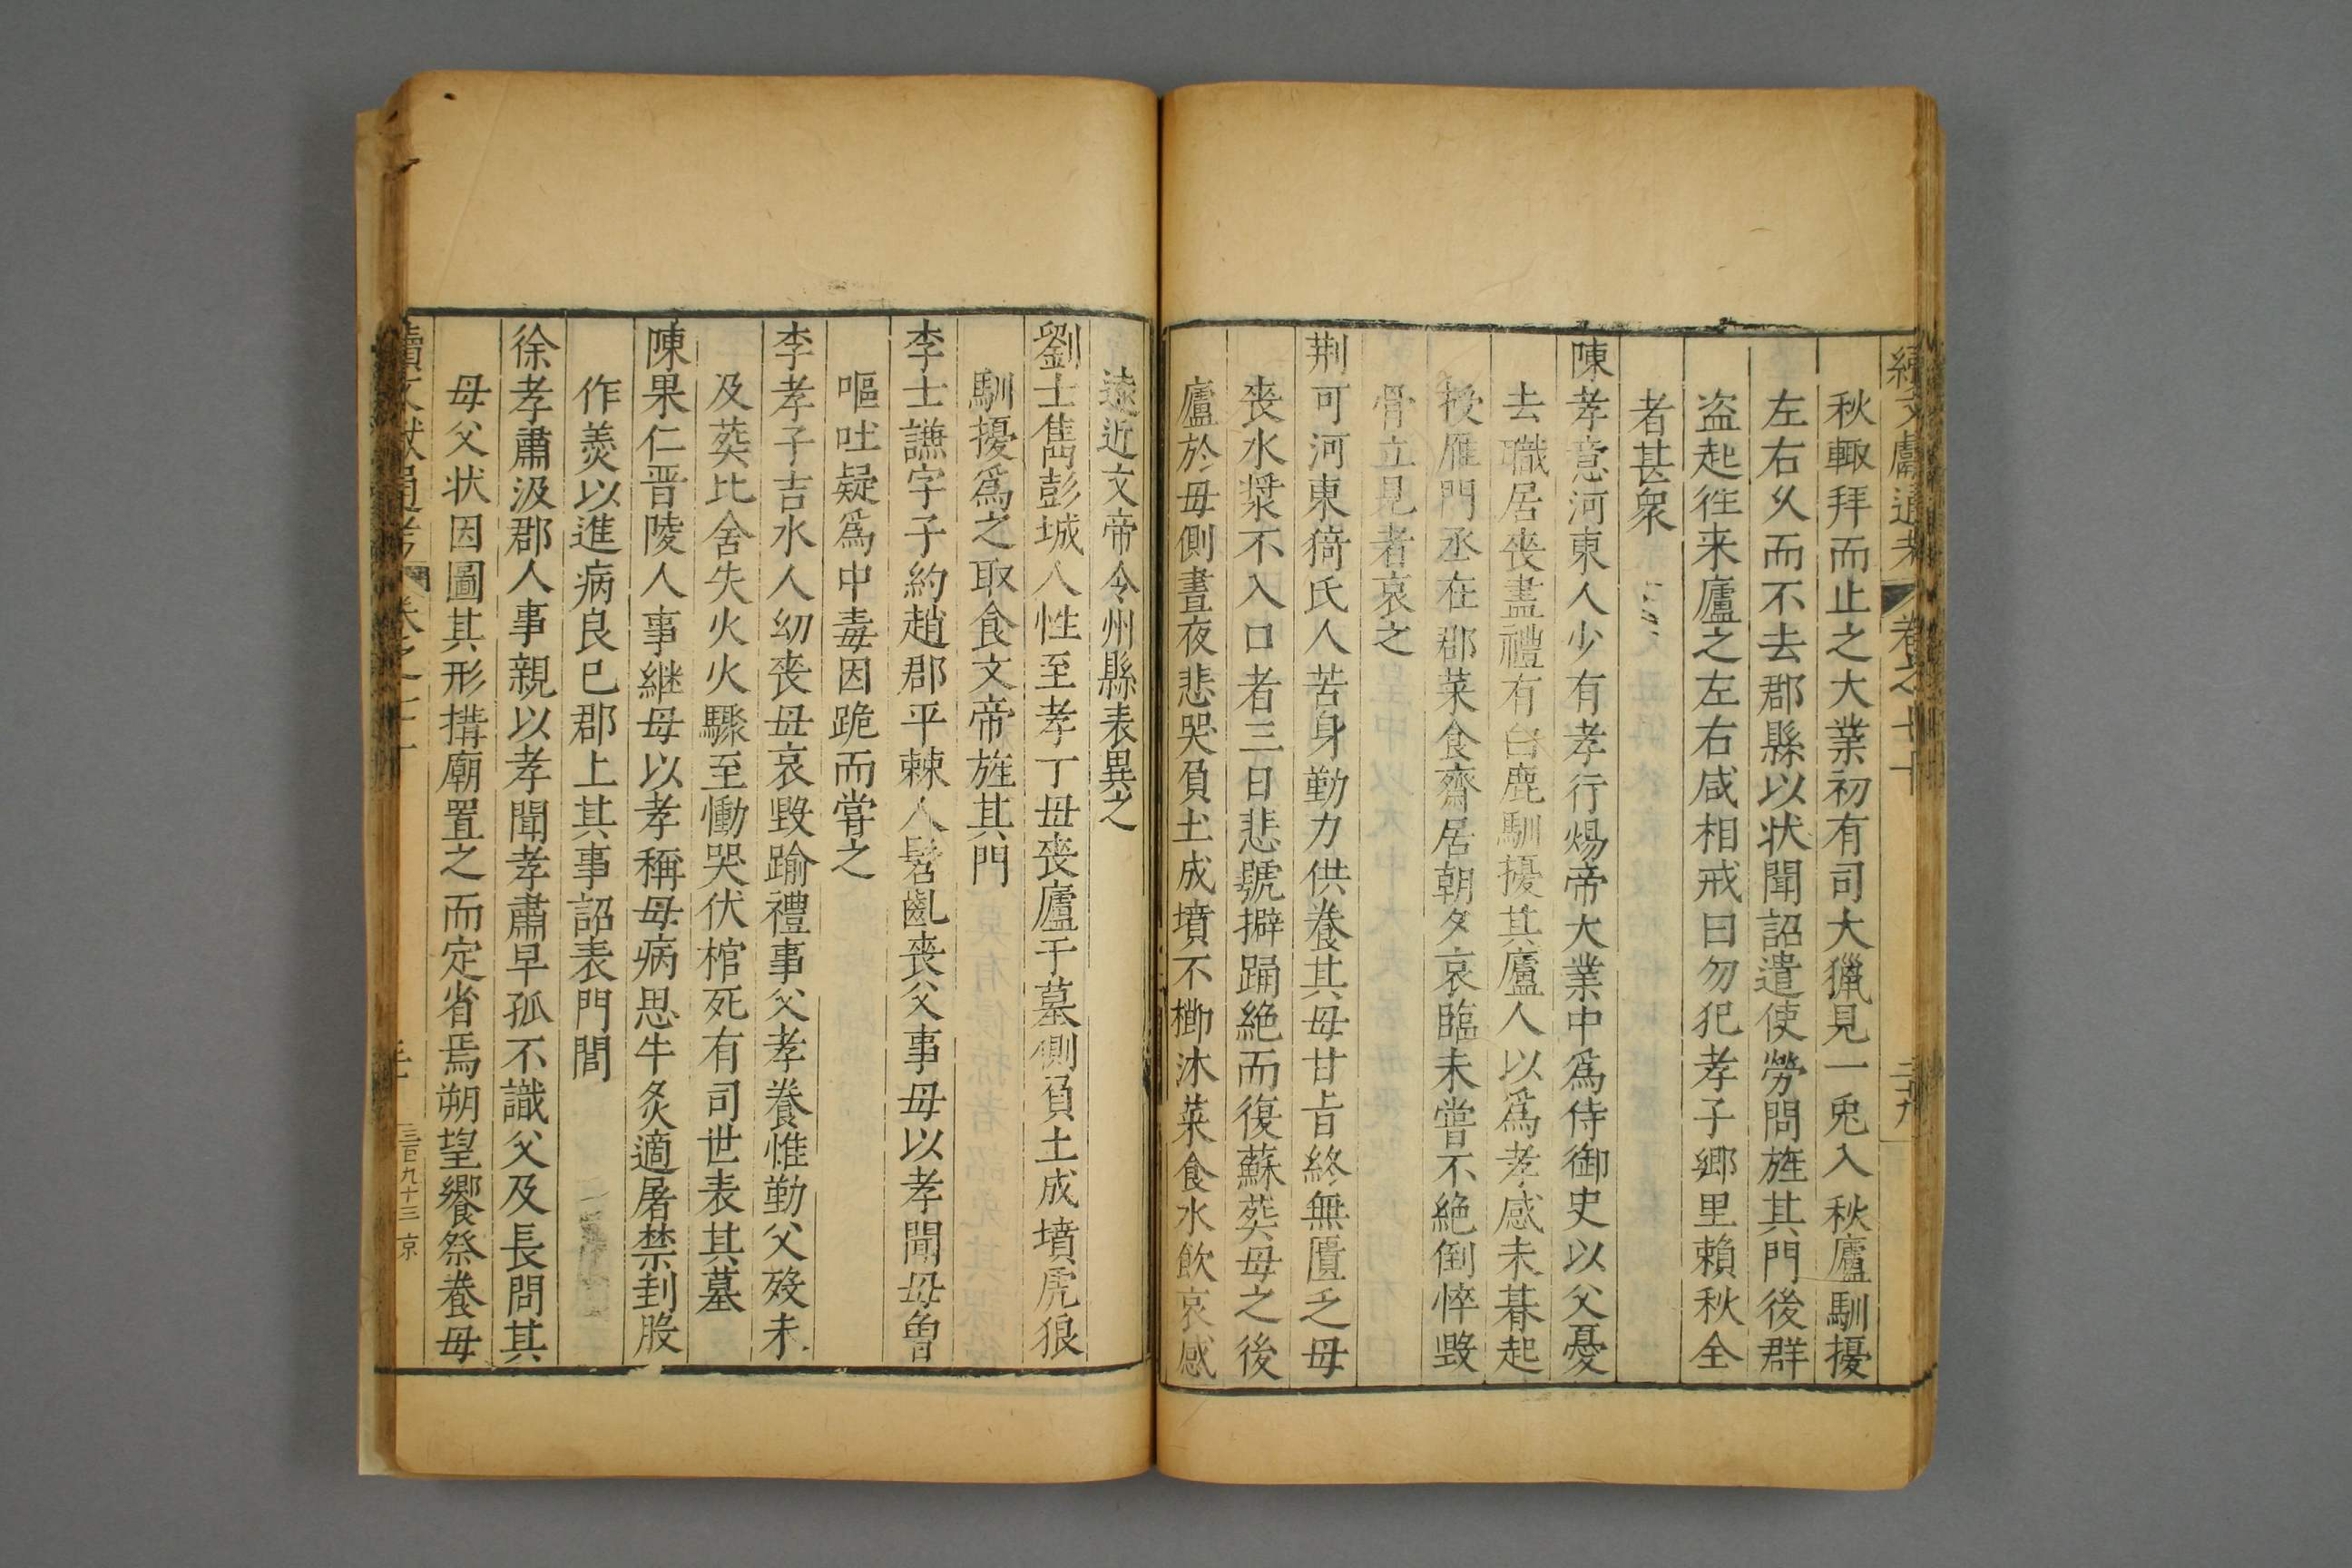 續文獻通考 卷之七十 三九
秋輙拜而止之大業初有司大獵見一兎入秋廬馴擾
左右乆而不去郡縣以状聞詔遣使勞問旌其門後群
盗起徃来廬之左右咸相戒曰勿犯孝子郷里頼秋全
者甚衆
陳孝意河東人少有孝行煬帝大業中爲侍御史以父憂
去職居喪盡禮有白鹿馴擾其廬人以爲孝感未朞起
授雁門丞在郡菜食齋居朝夕哀臨未嘗不絶倒悴毀
骨立見者哀之
荆可河東猗氏人苦身勤力供養其母甘旨終無匱乏母
喪水漿不入口者三日悲號擗踊絶而復蘇葬母之後
廬於母側晝夜悲哭負土成墳不櫛沐菜食水飲哀感
遠近文帝令州縣表異之
劉士雋彭城人性至孝丁母喪廬于墓側負土成墳虎狼
馴擾爲之取食文帝旌其門
李士謙字子約趙郡平棘人髫齓喪父事母以孝聞母曽
嘔吐疑爲中毒因跪而甞之
李孝子吉水人幼喪母哀毀踰禮事父孝養惟勤父歿未
及葬比舍失火火驟至慟哭伏棺死有司世表其墓
陳果仁晋陵人事継母以孝稱母病思牛炙適屠禁刲股
作羮以進病良已郡上其事詔表門閭
徐孝肅汲郡人事親以孝聞孝肅早孤不識父及長問其
母父状因圖其形搆廟置之而定省焉朔望饗祭養母
續文獻通考 卷之七十 三百九十三 京